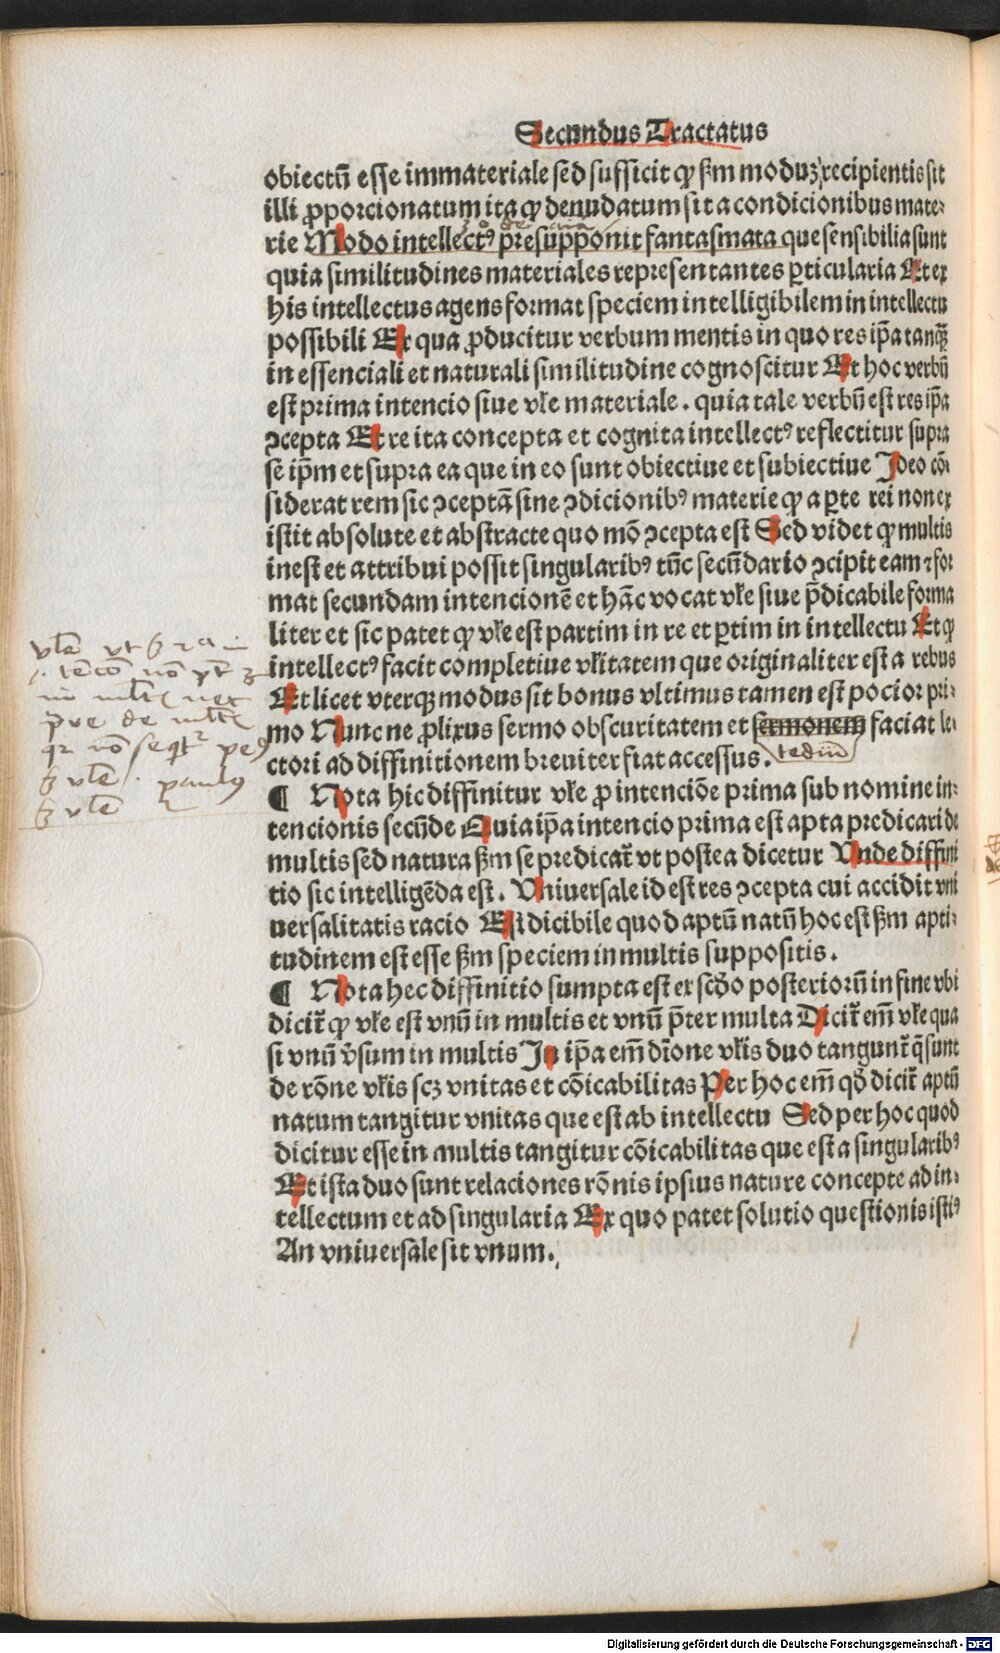 Secundus Tractatus
obiectū esse immateriale sed sufficit ꝙ ẜm moduꝫ recipientis sit
illi ꝓporcionatum ita ꝙ denudatum sit a condicionibus mate⸗
rie Modo intellectꝰ presupponit fantasmata que sensibilia sunt
quia similitudines materiales representantes ꝑticularia Et ex
his intellectus agens format speciem intelligibilem in intellectu
possibili Ex qua ꝓducitur verbum mentis in quo res ip̄a tanꝗ̄
in essenciali et naturali similitudine cognoscitur Et hoc verbū
est prima intencio siue vł̓e materiale . quia tale verbū est res ip̄a
ↄcepta Et re ita concepta et cognita intellectꝰ reflectitur supra
se ip̄m et supra ea que in eo sunt obiectiue et subiectiue Ideo cō⸗
siderat rem sic ↄceptā sine ↄdicionibꝰ materie ꝙ a ꝑte rei non ex
istit absolute et abstracte quo mō ↄcepta est Sed videt ꝙ multis
inest et attribui possit singularibꝰ tūc secūdario ↄcipit eam ⁊ for
mat secundam intencionē et hāc vocat vł̓e siue p̄dicabile forma
liter et sic patet ꝙ vł̓e est partim in re et ꝑtim in intellectu Et ꝙ
intellectꝰ facit completiue vł̓itatem que originaliter est a rebus
Et licet vterqꝫ modus sit bonus vltimus tamen est pocior pri⸗
mo Nunc ne ꝓlixus sermo obscuritatem et sermonem faciat le⸗
tediū
ctori ad diffinitionem breuiter fiat accessus .
¶ Nota hic diffinitur vł̓e ꝓ intenciōe prima sub nomine in⸗
tencionis secūde Quia ip̄a intencio prima est apta predicari de
multis sed natura ẜm se predicat᷑ vt postea dicetur Unde diffini
tio sic intelligēda est . Uniuersale id est res ↄcepta cui accidit vni
uersalitatis racio Est dicibile quod aptū natū hoc est ẜm apti⸗
tudinem est esse ẜm speciem in multis suppositis .
¶ Nota hec diffinitio sumpta est ex scd̄o posteriorū in fine vbi
dicit᷑ ꝙ vł̓e est vnū in multis et vnū p̄ter multa Dicit᷑ em̄ vł̓e qua
si vnū v̓sum in multis In ip̄a em̄ dīone vł̓is duo tangunt᷑ q̄ sunt
de rōne vł̓is scꝫ vnitas et cōicabilitas Per hoc em̄ qd̄ dicit᷑ aptū
natum tangitur vnitas que est ab intellectu Sed per hoc quod
dicitur esse in multis tangitur cōicabilitas que est a singularibꝰ
Et ista duo sunt relaciones rōnis ipsius nature concepte ad in⸗
tellectum et ad singularia Ex quo patet solutio questionis istiꝰ
An vniuersale sit vnum .
vł̓e vt
nō
in multꝭ
de multꝭ
nō seqt᷑
vł̓e . paulꝰ
vł̓e
Digitalisierung gefördert durch die Deutsche Forschungsgemeinschaft - DFG